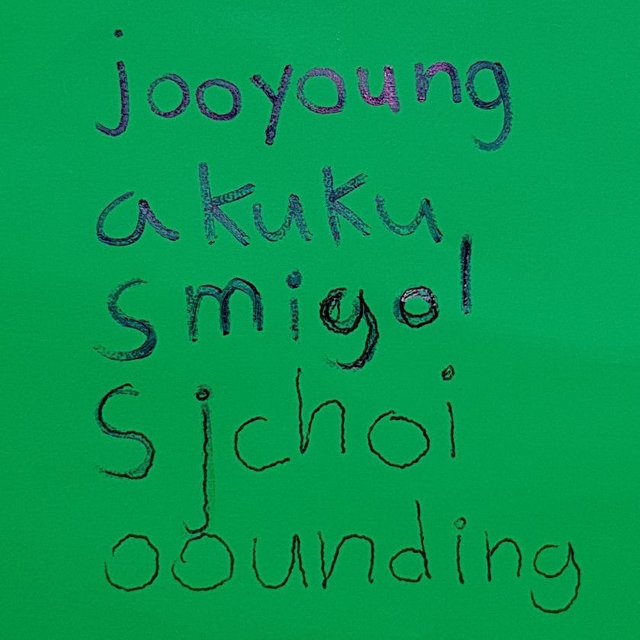 jooyoung
akuku
smigol
sjchoi
oounding